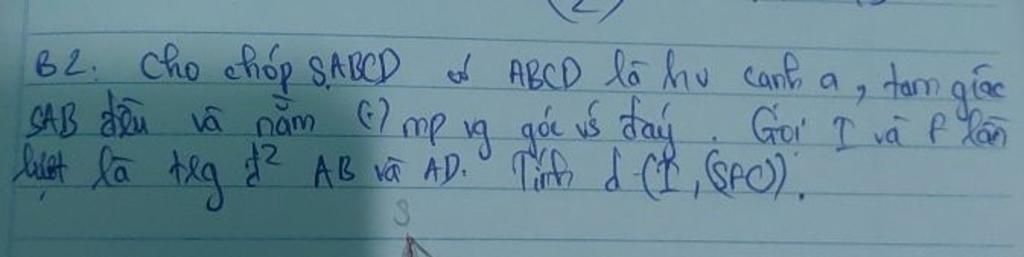 (2)
B2. Cho chóp S.ABCD có ABCD là hv cạnh a, tam giác
SAB đều và nằm (:) mp vg góc vs đáy. Gọi I và F lần
lượt là trg đ² AB và AD. Tính d(I,(SFC)).
S